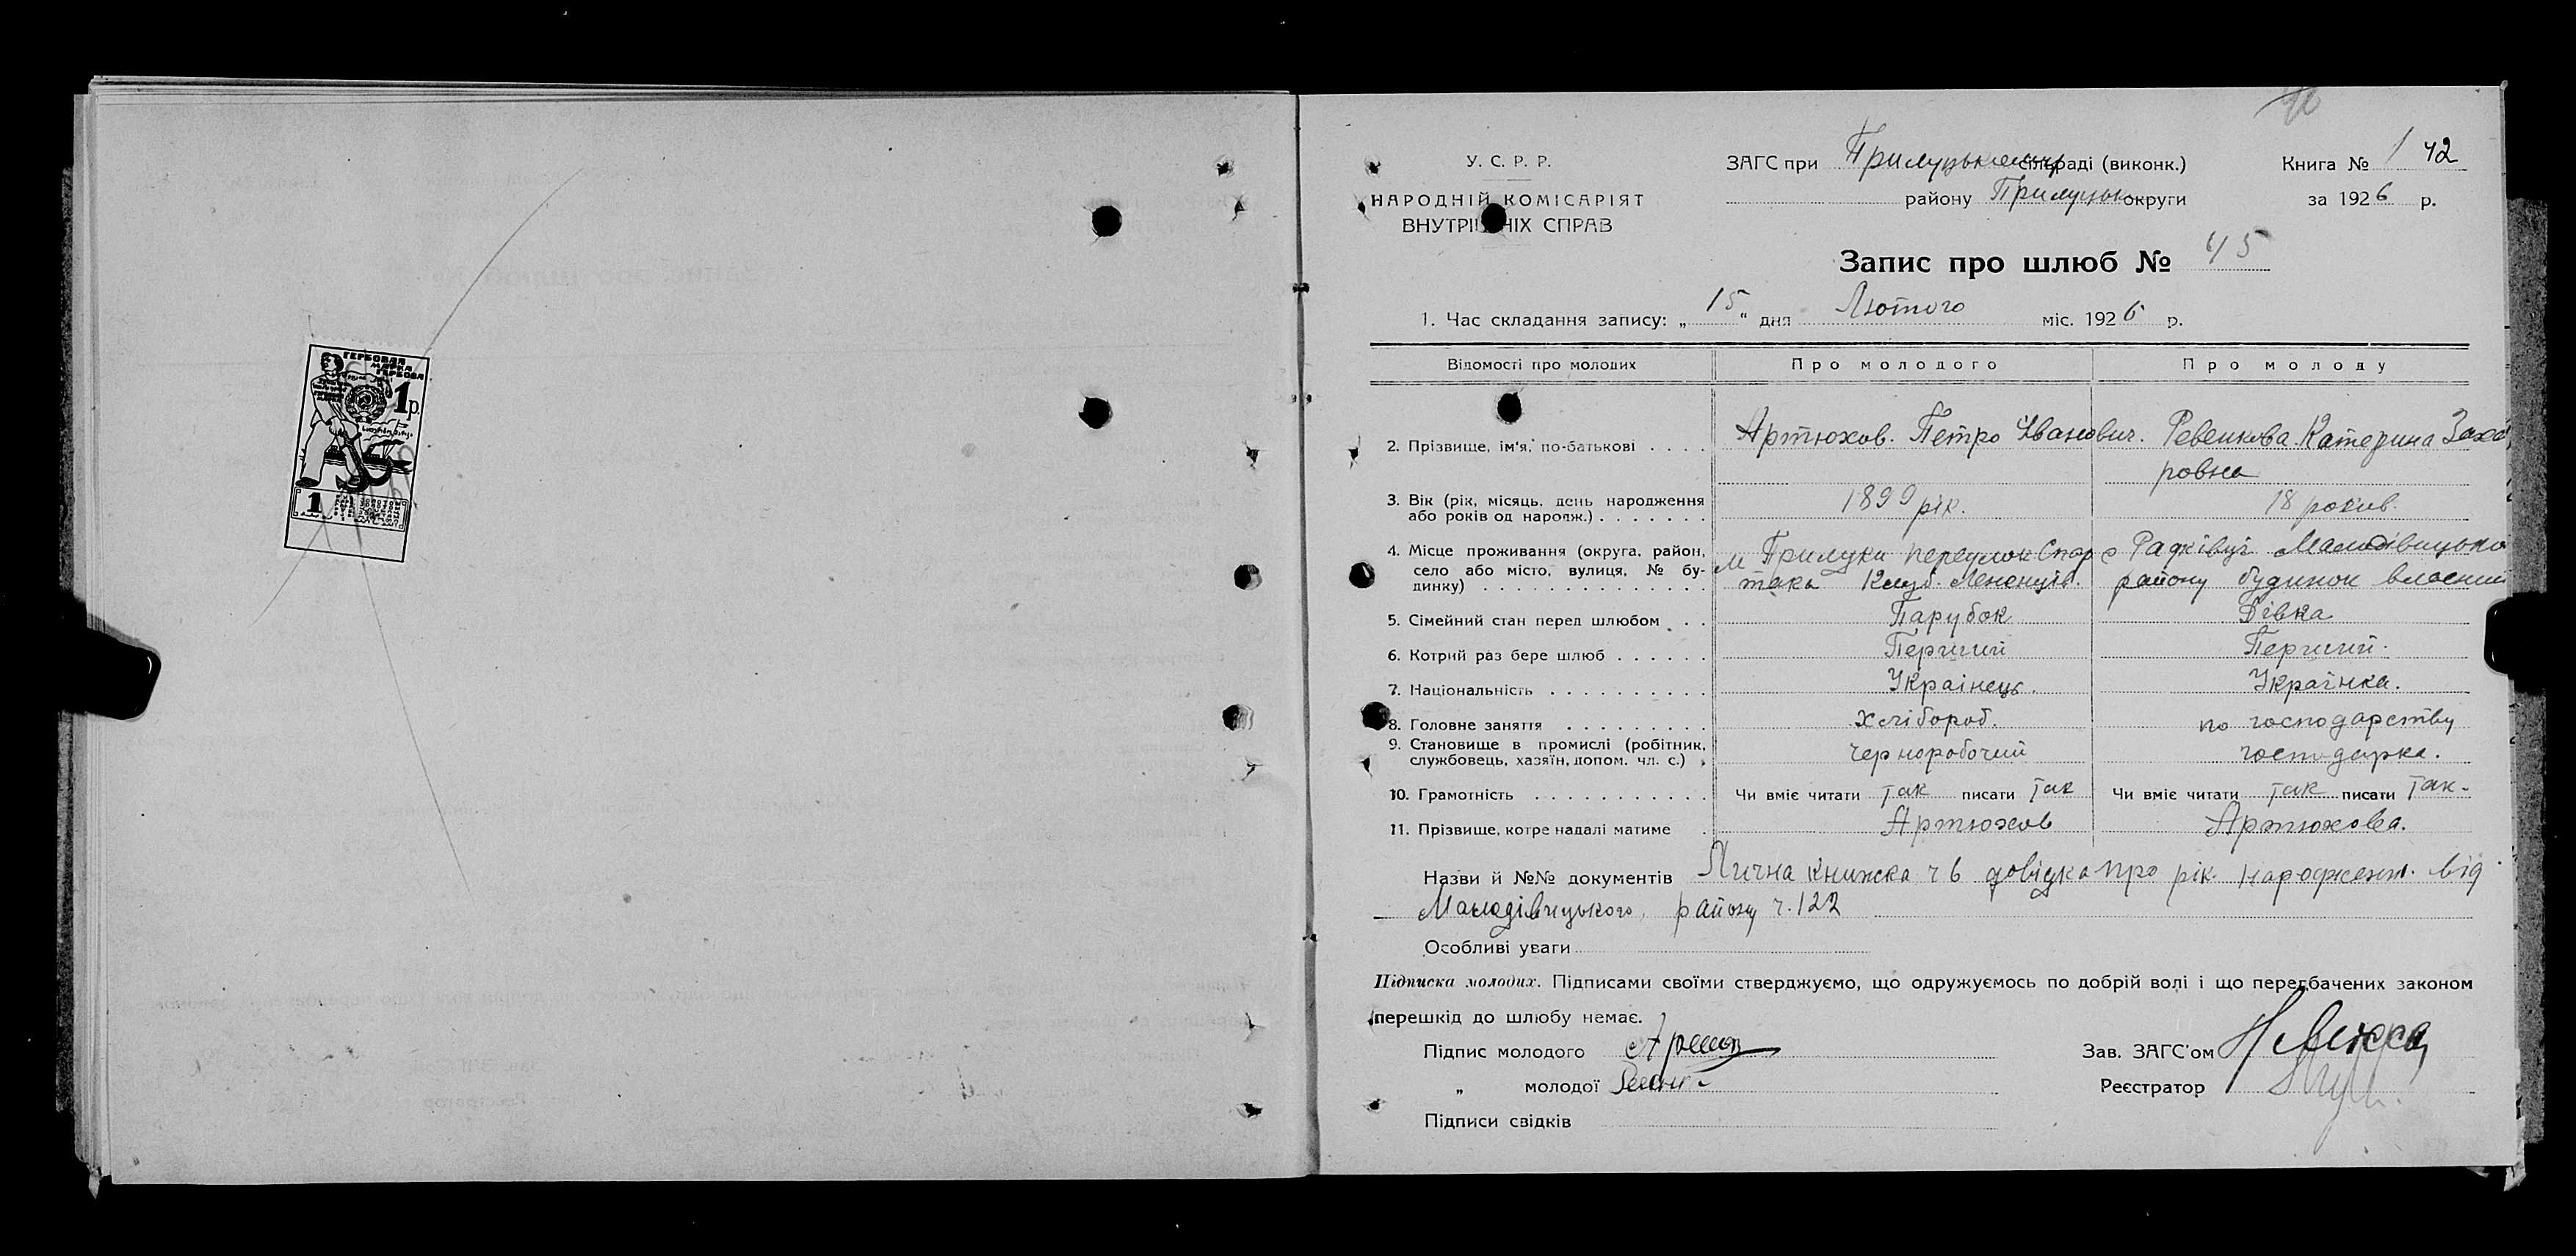 ГЕРБОВАЯ
МАРКА
ГЕРБОВА
1 р.
1
У. С. Р. Р.
НАРОДНІЙ КОМІСАРІЯТ
ВНУТРІШНІХ СПРАВ
ЗАГС при Прилуцькому сільраді (виконк.)
району Прилуцьк округи
Книга № 1 42
за 1926 р.
Запис про шлюб № 45
1. Час складання запису: „15“ дня Лютого міс. 1926 р.
Відомості про молодих Про молодого Про молоду
2. Прізвище, ім'я, по-батькові . . . . Артюхов. Петро Іванович. Ревенкова Катерина Заха
ровна
3. Вік (рік, місяць, день народження
або років од народж.) . . . . . . . 1899 рік. 18 років.
4. Місце проживання (округа, район,
село або місто, вулиця, № бу-
динку) . . . . . . . . . . . . . .
м Прилуки переулок Спар
така Клуб. Ленінців.
с Радківці Малодівицько
району будинок власний
5. Сімейний стан перед шлюбом . . Парубок Дівка
6. Котрий раз бере шлюб . . . . . . Перший Перший.
7. Національність . . . . . . . . . . Українець. Українка.
8. Головне заняття . . . . . . . . . хлібороб. по господарству
9. Становище в промислі (робітник,
службовець, хазяїн, допом. чл. с.) . чорноробочий господарка.
10. Грамотність . . . . . . . . . . . Чи вміє читати так писати так Чи вміє читати так писати так.
11. Прізвище, котре надалі матиме . Артюхов Артюхова.
Назви й №№ документів Лична книжка ч 6 довідка про рік народжен. від
Малодівицького району ч. 122
Особливі уваги
Підписка молодих. Підписами своїми стверджуємо, що одружуємось по добрій волі і що передбачених законом
перешкід до шлюбу немає.
Підпис молодого
Зав. ЗАГС'ом
„ молодої
Реєстратор
Підписи свідків